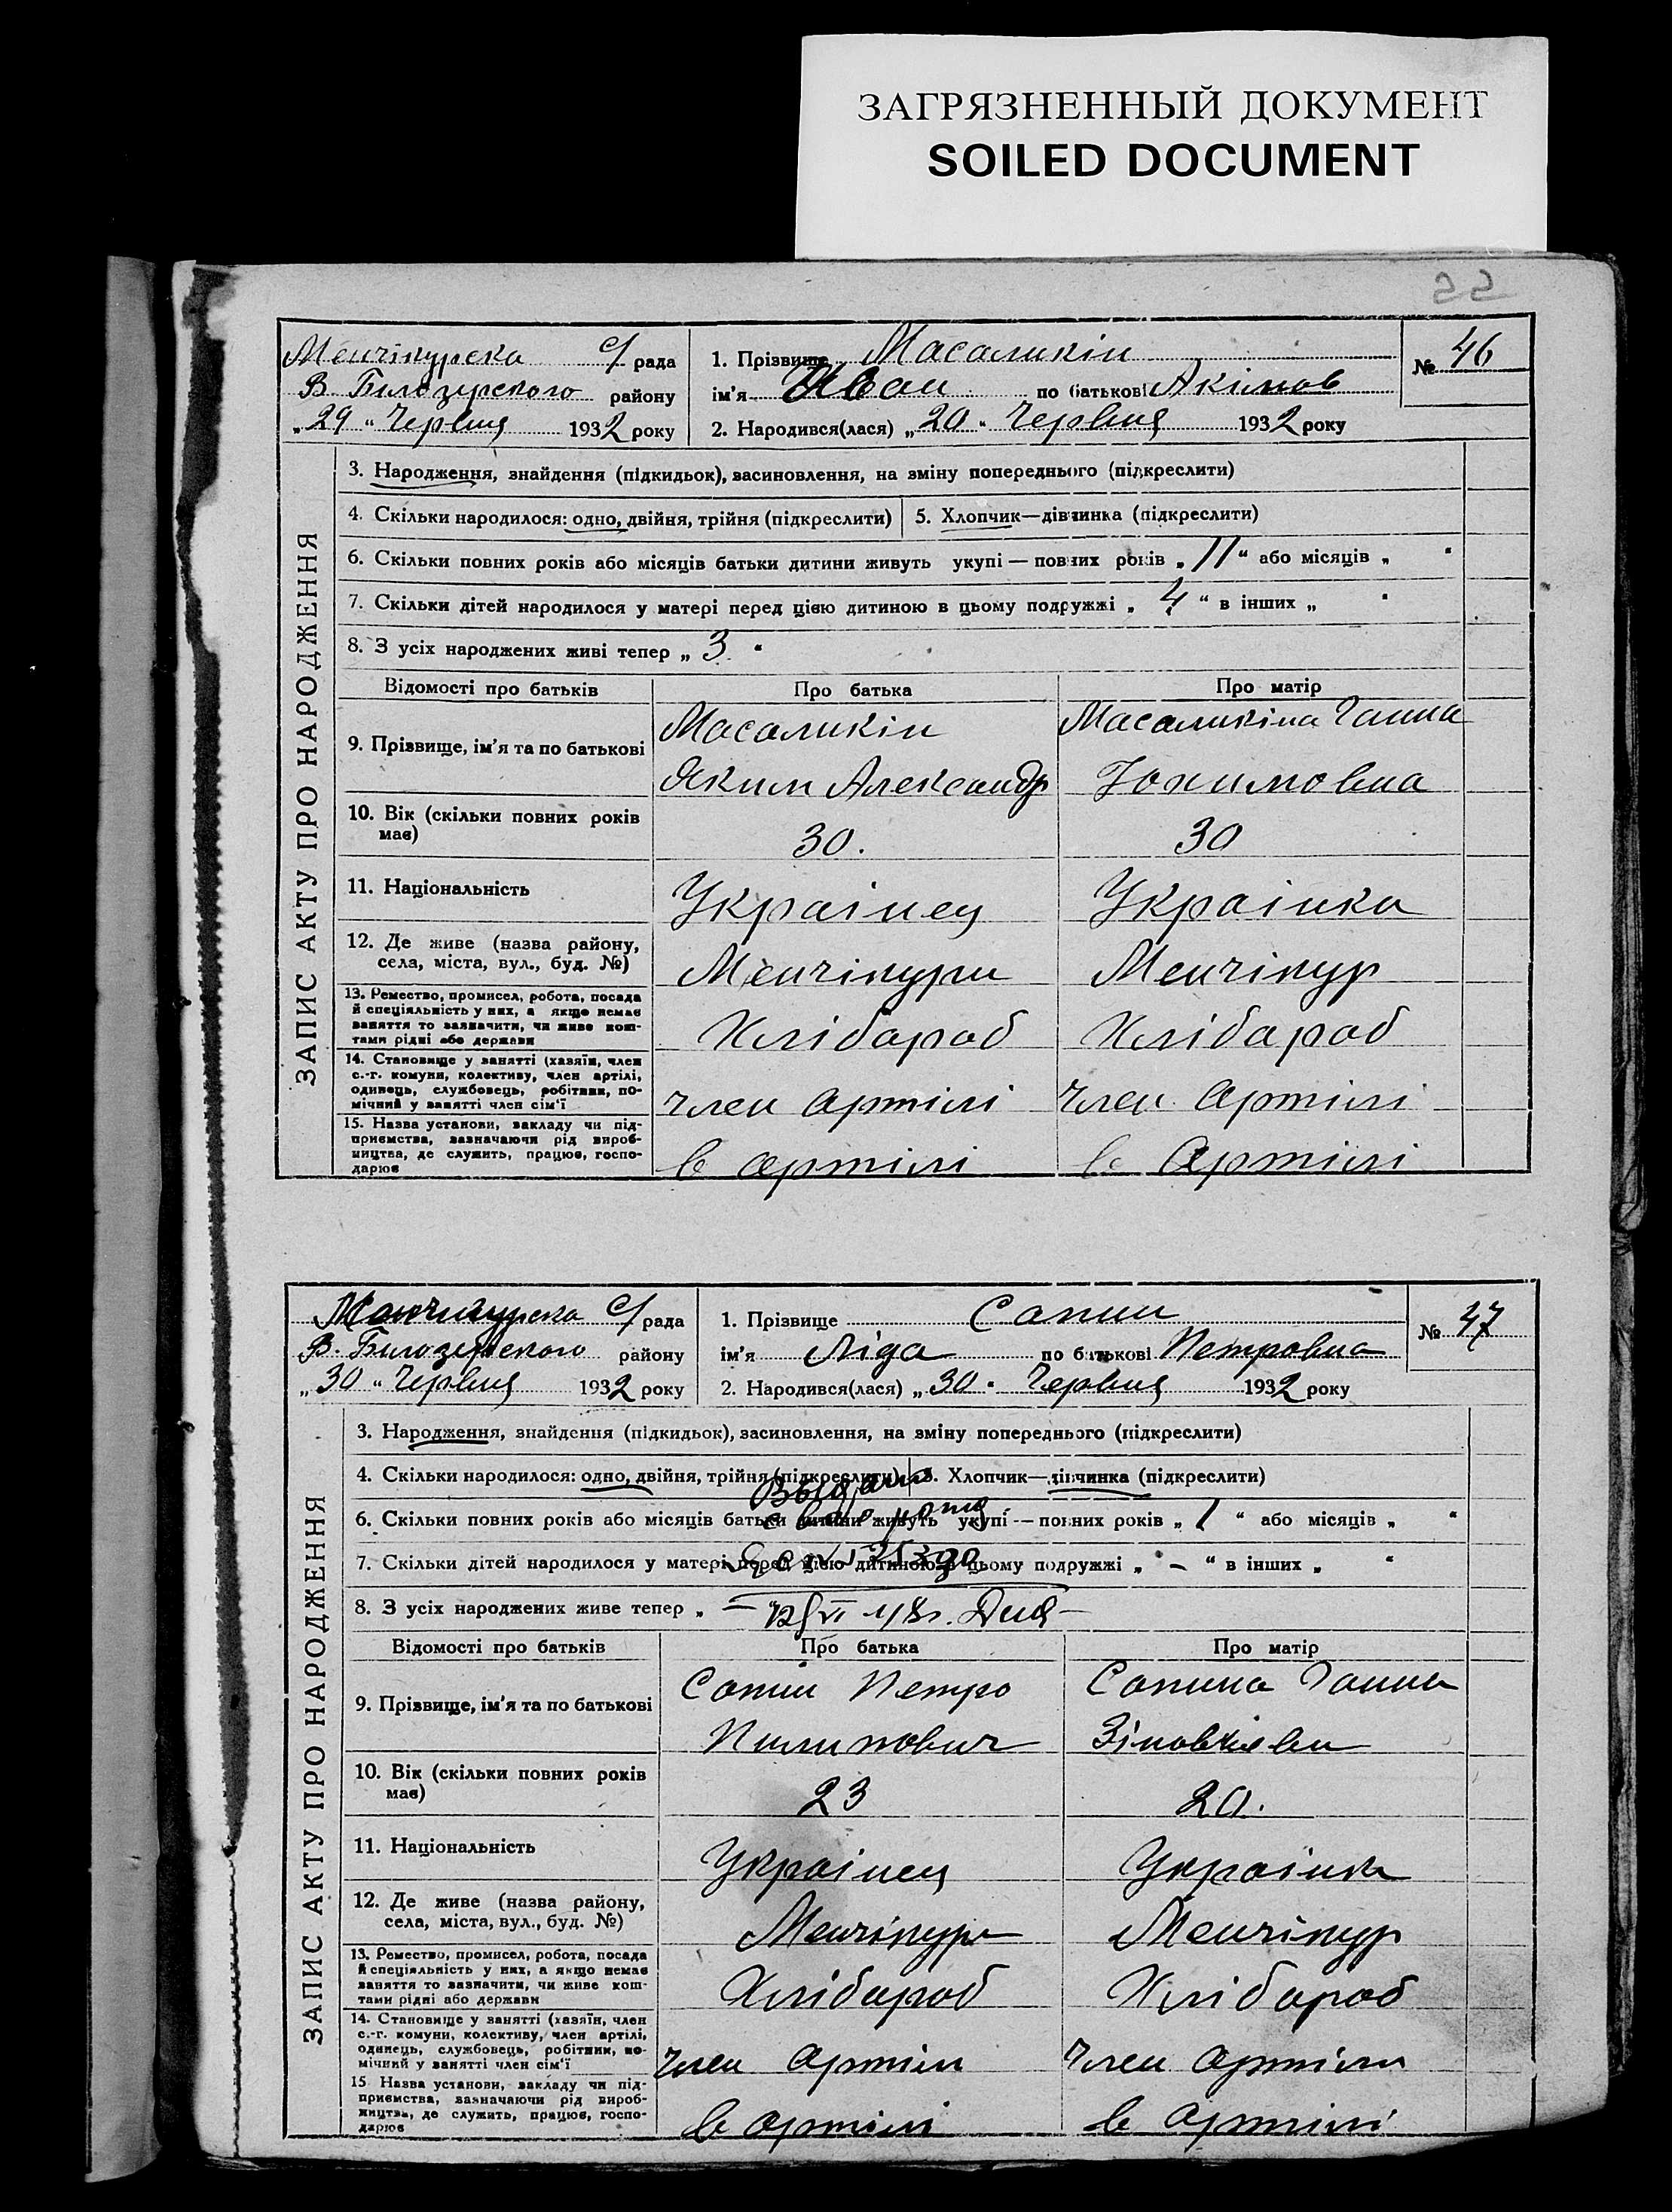 ЗАГРЯЗНЕННЫЙ ДОКУМЕНТ
SOILED DOCUMENT
22
Менчікурска с/рада
В. Білозерского району
„29“ Червня 1932 року
1. Прізвище Масаликін
ім’я Иван по батькові Акімов
2. Народився(лася) „20“ Червня 1932 року
№ 46
ЗАПИС АКТУ ПРО НАРОДЖЕННЯ
3. Народження, знайдення (підкидьок), засиновлення, на зміну попереднього (підкреслити)
4. Скільки народилося: одно, двійня, трійня (підкреслити) 5. Хлопчик—дівчинка (підкреслити)
6. Скільки повних років або місяців батьки дитини живуть укупі — повних років „11“ або місяців „ “
7. Скільки дітей народилося у матері перед цією дитиною в цьому подружжі „4“ в інших „ “
8. З усіх народжених живі тепер „3“
Відомості про батьків Про батька Про матір
9. Прізвище, ім’я та по батькові
Масаликін
Яким Александр
Масаликіна Ганна
Юхимовна
10. Вік (скільки повних років
має)
30.
30
11. Національність
Украінец
Украінка
12. Де живе (назва району,
села, міста, вул., буд. №)
Менчікури
Менчікур
13. Ремество, промисел, робота, посада
й спеціяльність у них, а якщо немає
заняття то зазначити, чи живе кош-
тами рідні або держави
Хлібароб
Хлібароб
14. Становище у занятті (хазяїн, член
с.-г. комуни, колективу, член артілі,
одинець, службовець, робітник, по-
мічний у занятті член сім’ї
член артілі
член артілі
15. Назва установи, закладу чи під-
приємства, зазначаючи рід вироб-
ництва, де служить, працює, госпо-
дарює
в артілі
в Артілі
Менчикурска с/рада
В. Білозерского району
„30“ Червня 1932 року
1. Прізвище Сапин
ім’я Ліда по батькові Петровна
2. Народився(лася) „30“ Червня 1932 року
№ 47
ЗАПИС АКТУ ПРО НАРОДЖЕННЯ
3. Народження, знайдення (підкидьок), засиновлення, на зміну попереднього (підкреслити)
4. Скільки народилося: одно, двійня, трійня (підкреслити) 5. Хлопчик—дівчинка (підкреслити)
6. Скільки повних років або місяців батьки дитини живуть укупі — повних років „1“ або місяців „ “
7. Скільки дітей народилося у матері перед цією дитиною в цьому подружжі „–“ в інших „ “
8. З усіх народжених живе тепер „ –
Відомості про батьків Про батька Про матір
9. Прізвище, ім’я та по батькові
Сапин Петро
Пилипович
Сапина Ганна
10. Вік (скільки повних років
має)
23
20.
11. Національність
Украінец
Украінка
12. Де живе (назва району,
села, міста, вул., буд. №)
Менчікур
Менчікур
13. Ремество, промисел, робота, посада
й спеціяльність у них, а якщо немає
заняття то зазначити, чи живе кош-
тами рідні або держави
Хлібароб
Хлібароб
14. Становище у занятті (хазяїн, член
с.-г. комуни, колективу, член артілі,
одинець, службовець, робітник, по-
мічний у занятті член сім’ї
член артіли
член артіли
15 Назва установи, закладу чи під-
приємства, зазначаючи рід вироб-
ництва, де служить, працює, госпо-
дарює
в артілі
в артілі